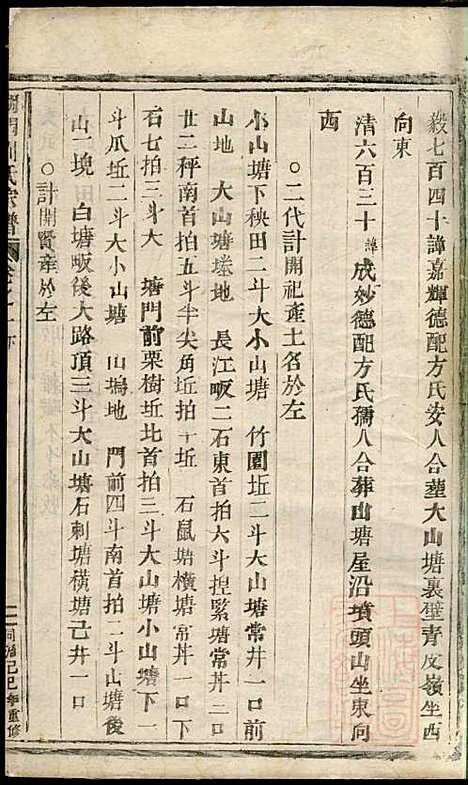 毅七百四十諱嘉輝德配方氏安人合塟大山塘裏壁青皮嶺坐西
向東
清六百三十諱成妙德配方氏孺人合葬山塘屋沿墳頭山坐東向
西
○二代計開祀產土名於左
小山塘下秧田二斗大小山塘 竹園坵二斗大山塘常井一口前
山地 大山塘塟地 長江畈二石東首拍六斗捏緊塘常井三口
廿二秤南首拍五斗半尖角坵拍一坵 石鼠塘横塘常井一口下
石七拍三斗大 塘門前栗樹坵北首拍三斗大山塘小山塘下一
斗爪坵二斗大小山塘 山塢地 門前四斗南首拍二斗山塘後
山一塊 白塘畈後大路頂三斗大山塘石刺塘橫塘己井一口
○計開賢產於左
劉氏宗譜
同治己巳年重修